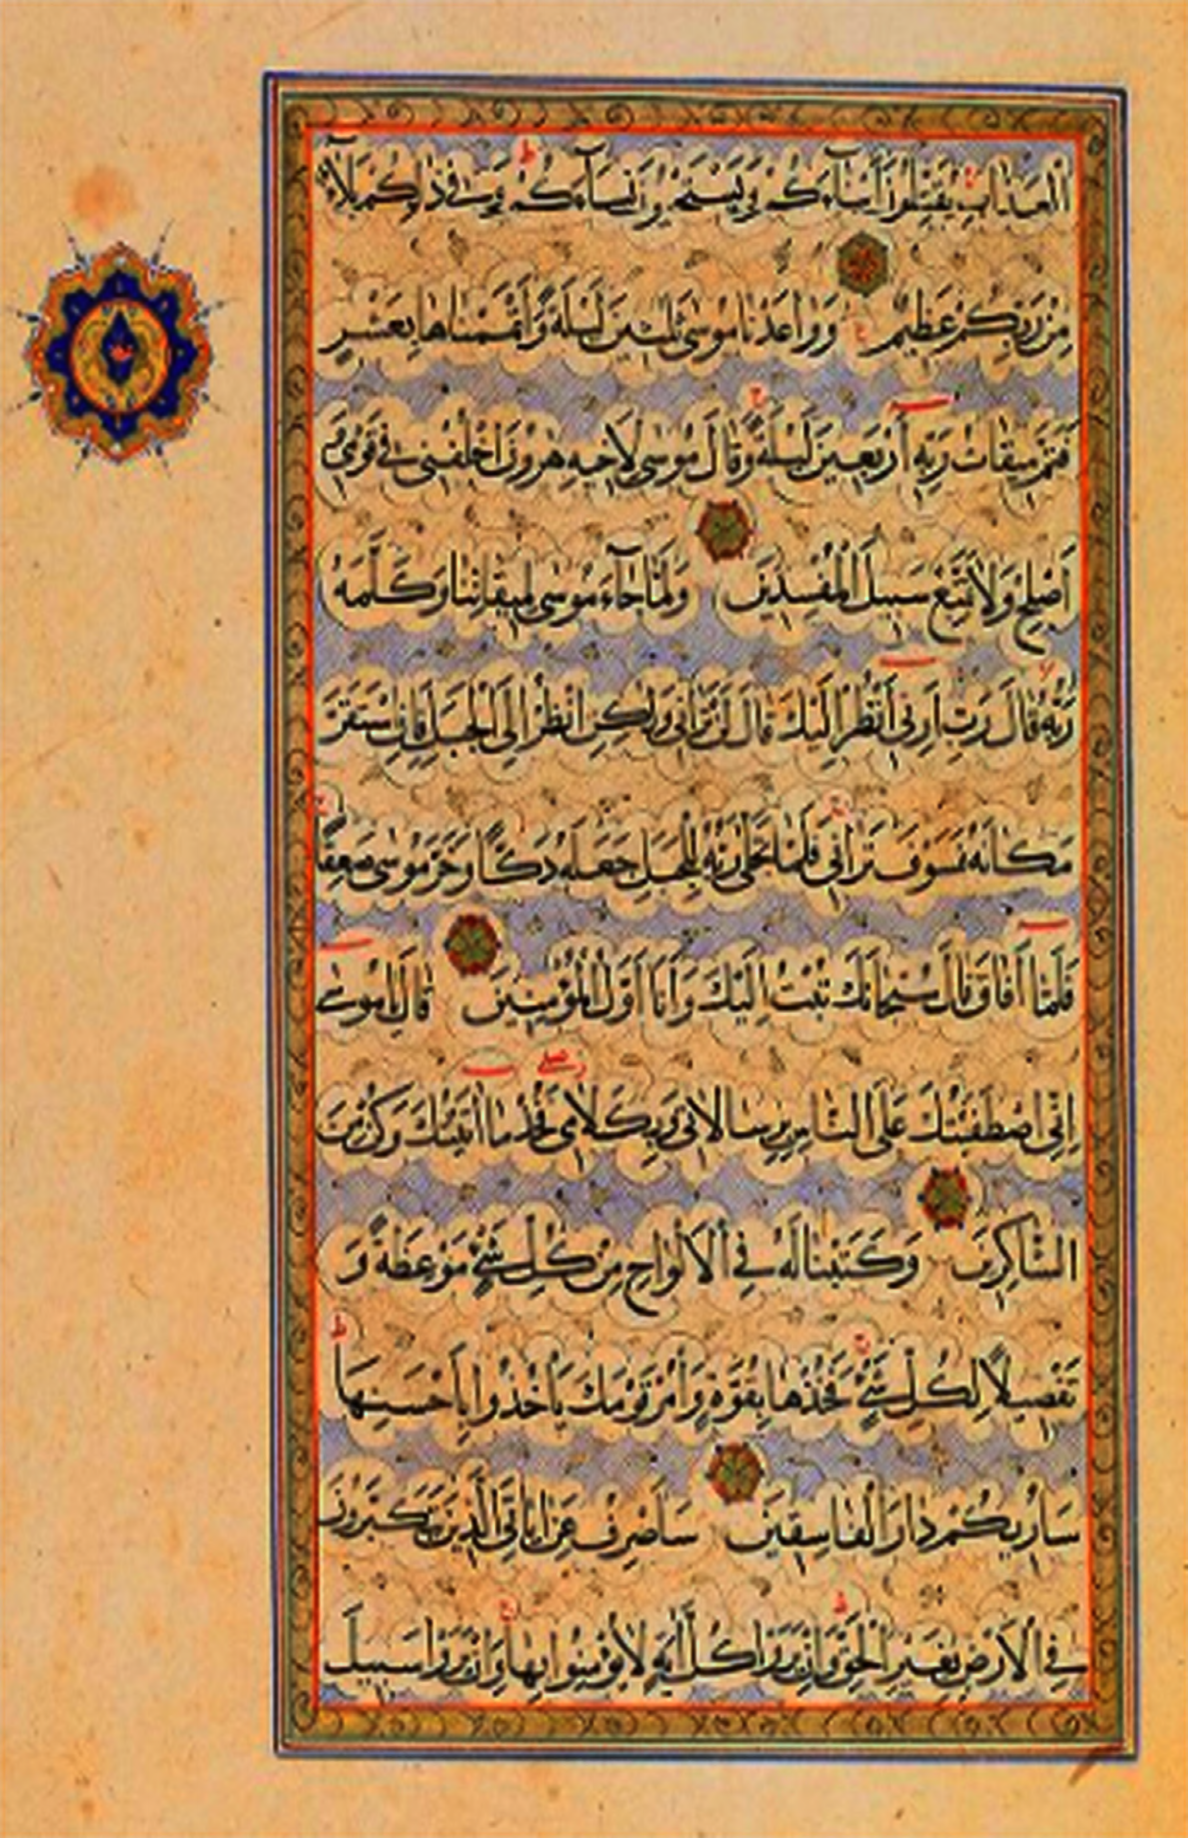 ٱلْعَذَابِ يُقَتِّلُونَ أَبْنَآءَكُمْ وَيَسْتَحْيُونَ نِسَآءَكُمْ وَفِي ذٰلِكُمْ بَلَآءٌ
مِنْ رَبِّكُمْ عَظِيمٌ وَوَاعَدْنَا مُوسَى ثَلٰثِينَ لَيْلَةً وَأَتْمَمْنَاهَا بِعَشْرٍ
فَتَمَّ مِيقَاتُ رَبِّهِ أَرْبَعِينَ لَيْلَةً وَقَالَ مُوسَى لِأَخِيهِ هٰرُونَ اخْلُفْنِي فِي قَوْمِي وَ
أَصْلِحْ وَلَا تَتَّبِعْ سَبِيلَ الْمُفْسِدِينَ وَلَمَّا جَآءَ مُوسَى لِمِيقَاتِنَا وَكَلَّمَهُ
رَبُّهُ قَالَ رَبِّ أَرِنِي أَنْظُرْ إِلَيْكَ قَالَ لَنْ تَرَانِي وَلٰكِنِ انْظُرْ إِلَى الْجَبَلِ فَإِنِ اسْتَقَرَّ
مَكَانَهُ فَسَوْفَ تَرَانِي فَلَمَّا تَجَلَّى رَبُّهُ لِلْجَبَلِ جَعَلَهُ دَكًّا وَخَرَّ مُوسَى صَعِقًا
فَلَمَّا أَفَاقَ قَالَ سُبْحَانَكَ تُبْتُ إِلَيْكَ وَأَنَا أَوَّلُ الْمُؤْمِنِينَ قَالَ يَا مُوسَى
إِنِّي اصْطَفَيْتُكَ عَلَى النَّاسِ بِرِسَالَاتِي وَبِكَلَامِي فَخُذْ مَا اٰتَيْتُكَ وَكُنْ مِنَ
الشَّاكِرِينَ وَكَتَبْنَا لَهُ فِي الْأَلْوَاحِ مِنْ كُلِّ شَيْءٍ مَوْعِظَةً وَ
تَفْصِيلًا لِكُلِّ شَيْءٍ فَخُذْهَا بِقُوَّةٍ وَأْمُرْ قَوْمَكَ يَأْخُذُوا بِأَحْسَنِهَا
سَأُرِيكُمْ دَارَ الْفَاسِقِينَ سَأَصْرِفُ عَنْ اٰيَاتِيَ الَّذِينَ يَتَكَبَّرُونَ
فِي الْأَرْضِ بِغَيْرِ الْحَقِّ وَإِنْ يَرَوْا كُلَّ اٰيَةٍ لَا يُؤْمِنُوا بِهَا وَإِنْ يَرَوْا سَبِيلَ